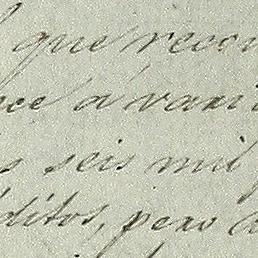 que recou
ce á vari
s seis mil
ditos, pero